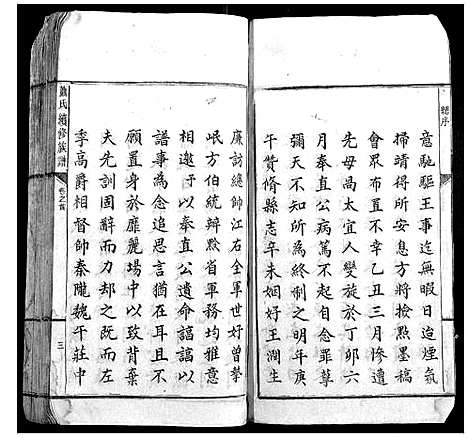 總序
意馳驅王事迄無暇日迨煙氛
掃靖得所安息方將撿點墨稿
會眾布置不幸乙丑三月慘遭
先母高太宜人變旋於丁卯六
月奉直公病篤不起自念罪孽
彌天不知所為終制之明年庚
午贊脩縣志辛未姻好王澗生
廉訪總帥江右全軍世好曾摯
岷方伯統辦黔省軍務均雅意
相邀予以奉直公遺命諄諄以
譜事為念追思言猶在耳且不
願置身於靡麗場中以致背棄
夫先訓固辭而力却之既而左
季高爵相督帥秦隴魏午莊中
蕭氏續修族譜
卷之首
三